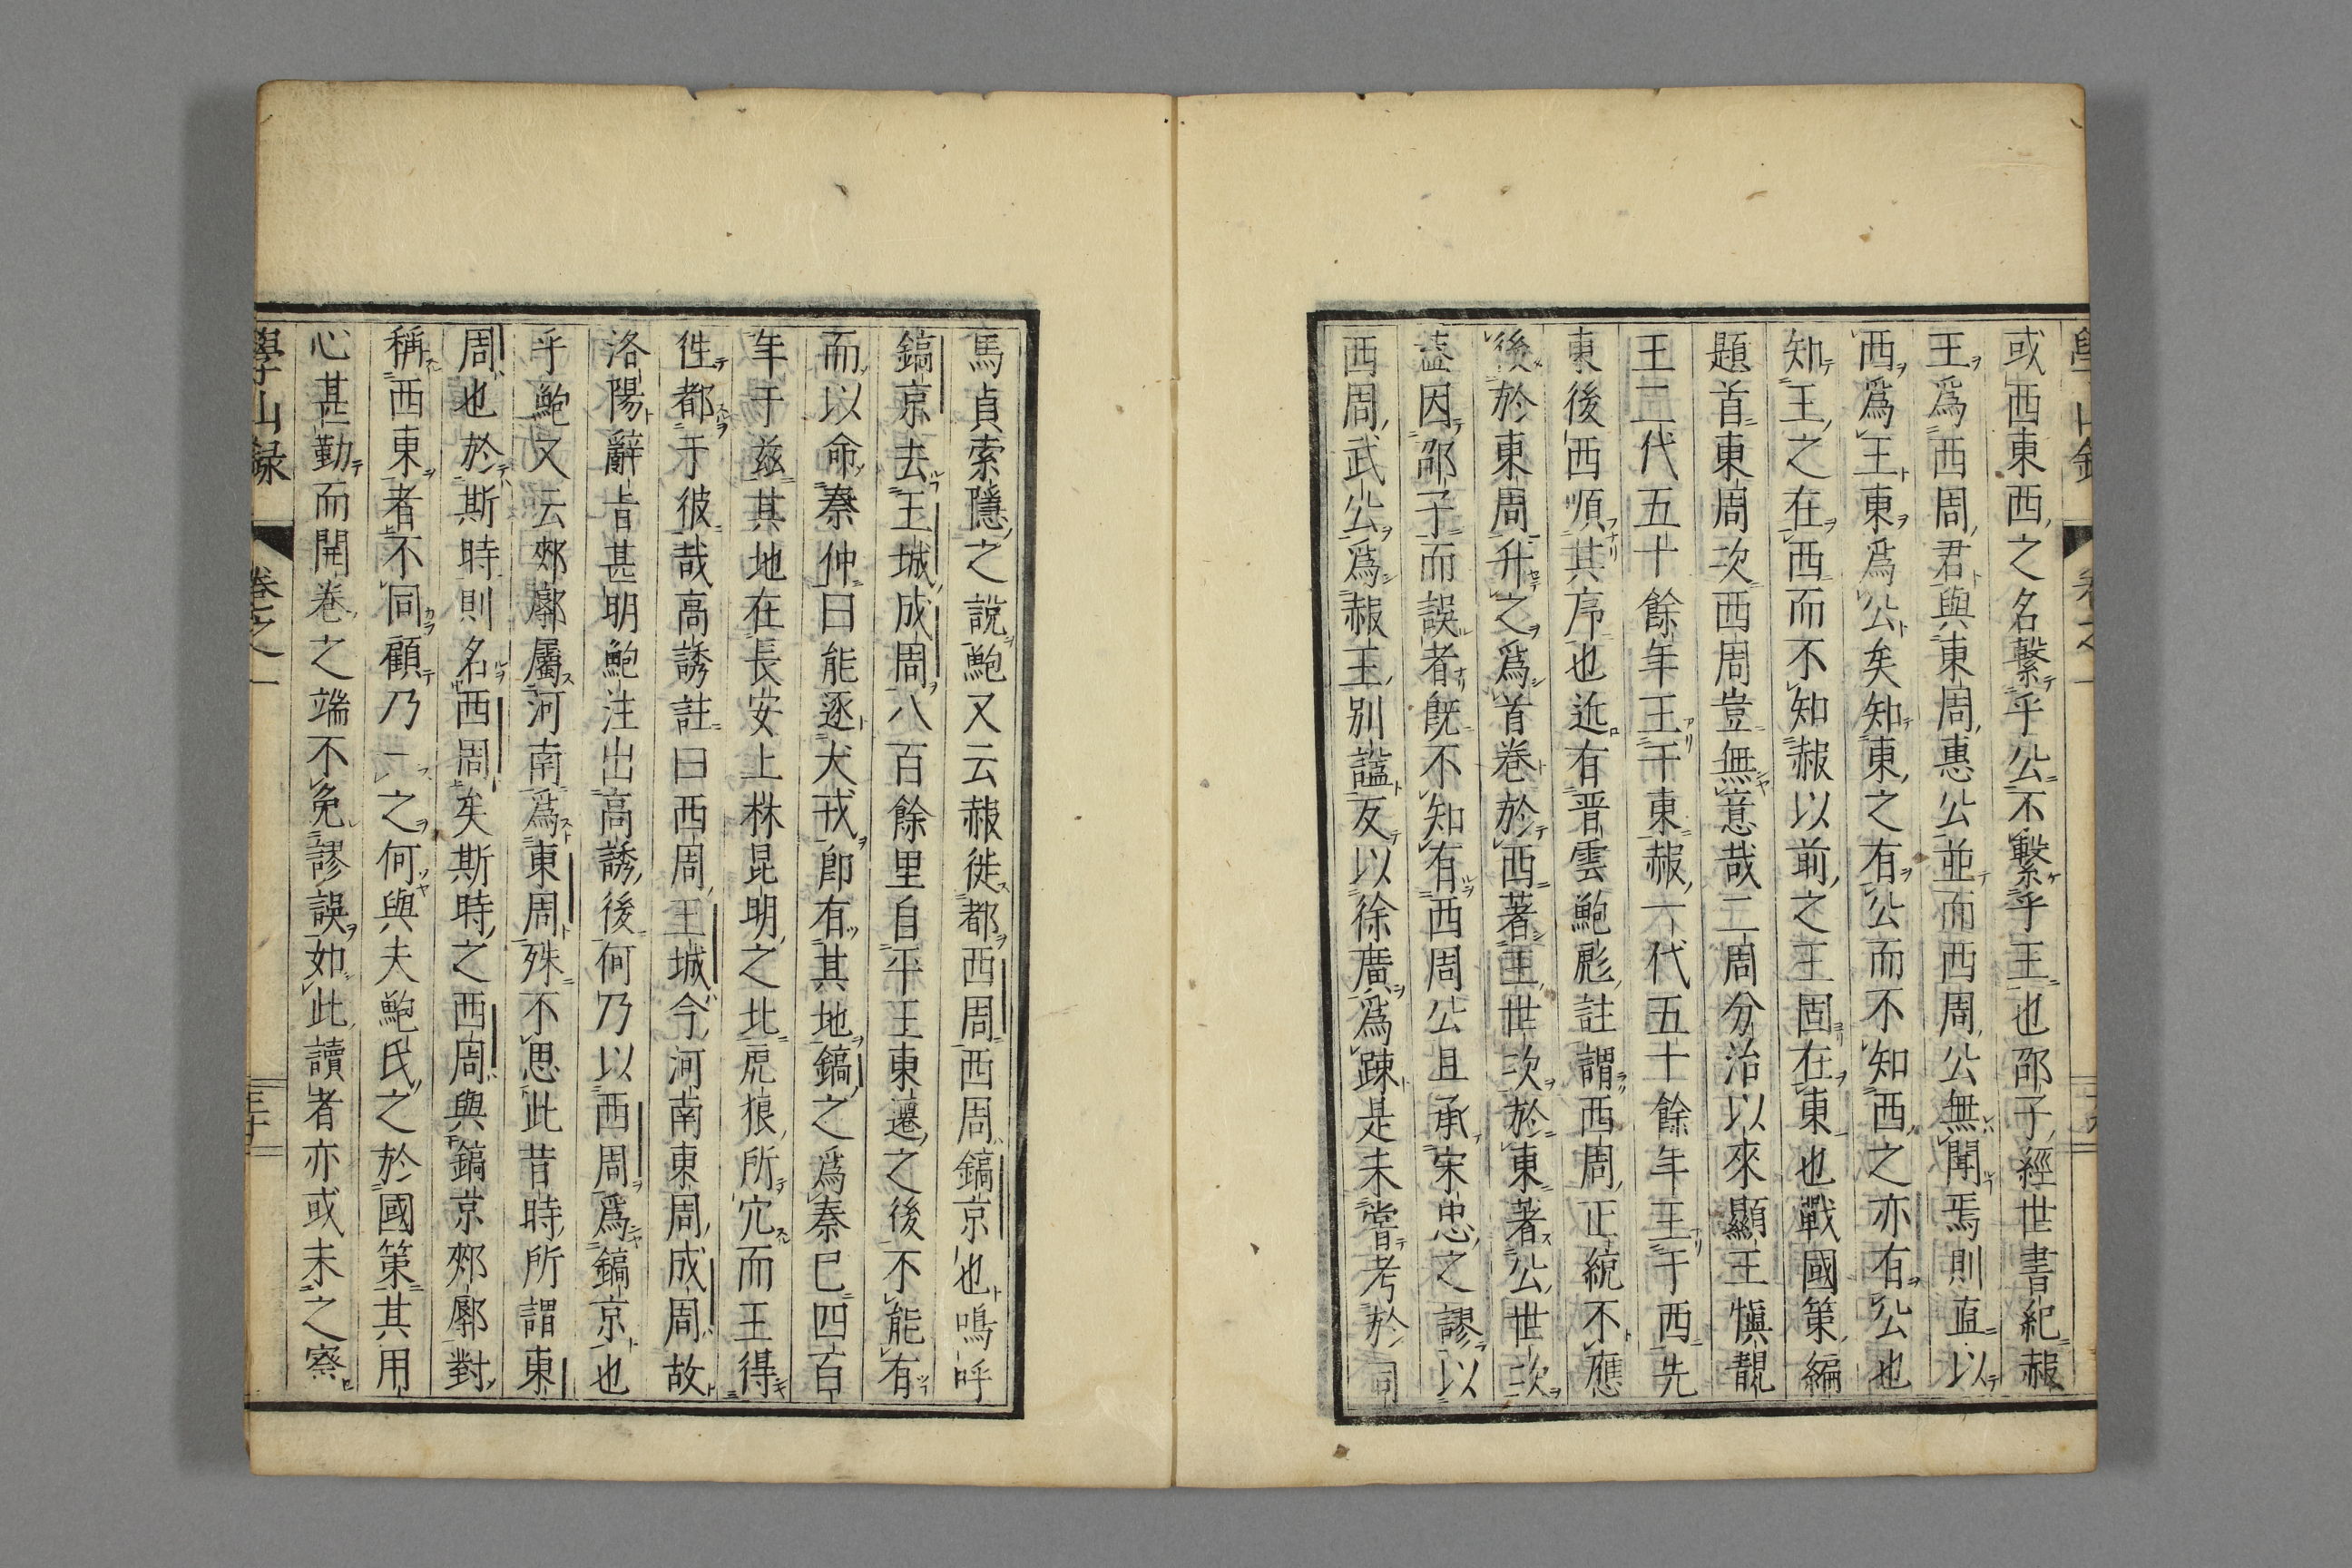 或西東西之名繫乎公不繫乎王也邵子經世書紀赧
王爲西周君與東周惠公並而西周公無聞焉則直以
西爲王東爲公矣知東之有公而不知西之亦有公也
知王之在西而不知赧以前之王固在東也戰國策編
題首東周次西周豈無意哉二周分治以來顯王愼靚
王二代五十餘年王于東赧一代五十餘年王于西先
東後西順其序也近有晋雲鮑彪註謂西周正統不應
後於東周升之爲首卷於西著王世次於東著公世次
蓋因邵子而誤者既不知有西周公且承宋忠之謬以
西周武公爲赧王別謚反以徐廣爲踈是未嘗考於司
馬貞索隱之說鮑又云赧徙都西周西周鎬京也嗚呼
鎬京去王城成周八百餘里自平王東遷之後不能有
而以命秦仲曰能逐犬戎卽有其地鎬之爲秦已四百
年于兹其地在長安上林昆明之北虎狼所穴而王得
徃都于彼哉高誘註曰西周王城今河南東周成周故
洛陽辭旨甚明鮑注出高誘後何乃以西周爲鎬京也
乎鮑又云郟鄏屬河南爲東周殊不思此昔時所謂東
周也於斯時則名西周矣斯時之西周與鎬京郟鄏對
稱西東者不同顧乃一之何與夫鮑氏之於國策其用
心甚勤而開卷之端不免謬誤如此讀者亦或未之察
學山録 卷之一 三十